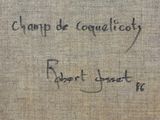 Champ de coquelicots
Robert Josset
86